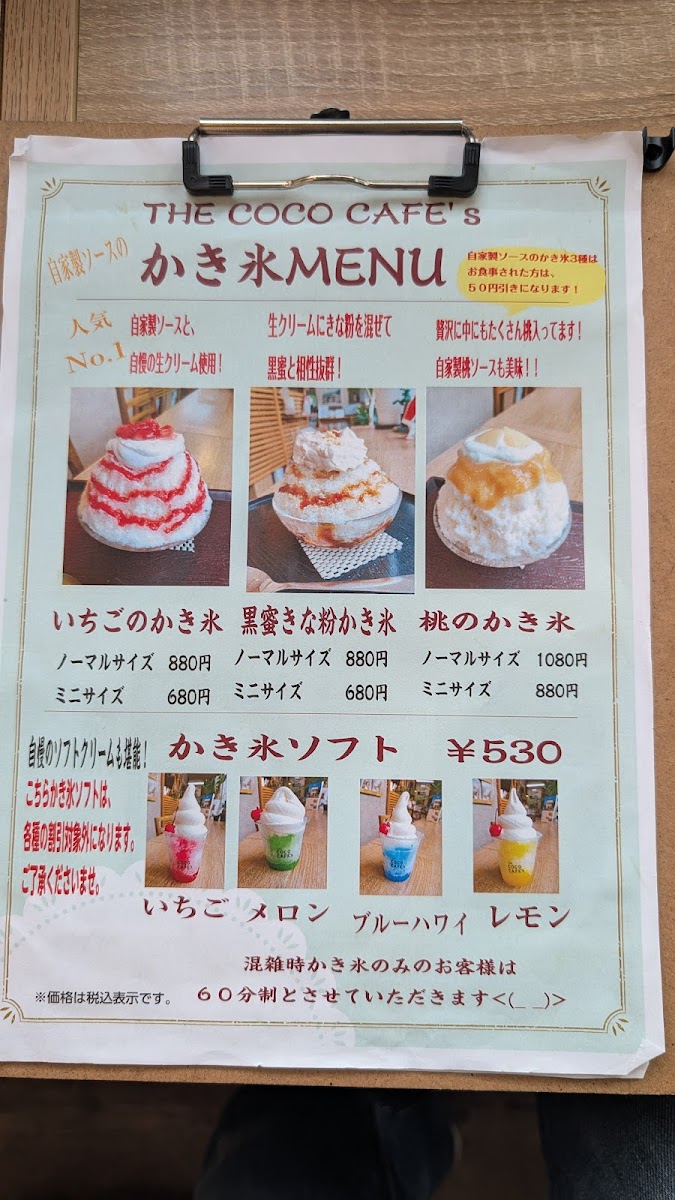 THE COCO CAFE's
自家製ソースの
かき氷MENU
自家製ソースのかき氷3種は
お食事された方は、
５０円引きになります！
人気
No.1
自家製ソースと、
自慢の生クリーム使用！
生クリームにきな粉を混ぜて
黒蜜と相性抜群！
贅沢に中にもたくさん桃入ってます！
自家製桃ソースも美味！！
いちごのかき氷
ノーマルサイズ 880円
ミニサイズ 680円
黒蜜きな粉かき氷
ノーマルサイズ 880円
ミニサイズ 680円
桃のかき氷
ノーマルサイズ 1080円
ミニサイズ 880円
自慢のソフトクリームも堪能！
かき氷ソフト ￥530
こちらかき氷ソフトは、
各種の割引対象外になります。
ご了承くださいませ。
いちご
メロン
ブルーハワイ
レモン
混雑時かき氷のみのお客様は
６０分制とさせていただきます<(_ _)>
※価格は税込表示です。